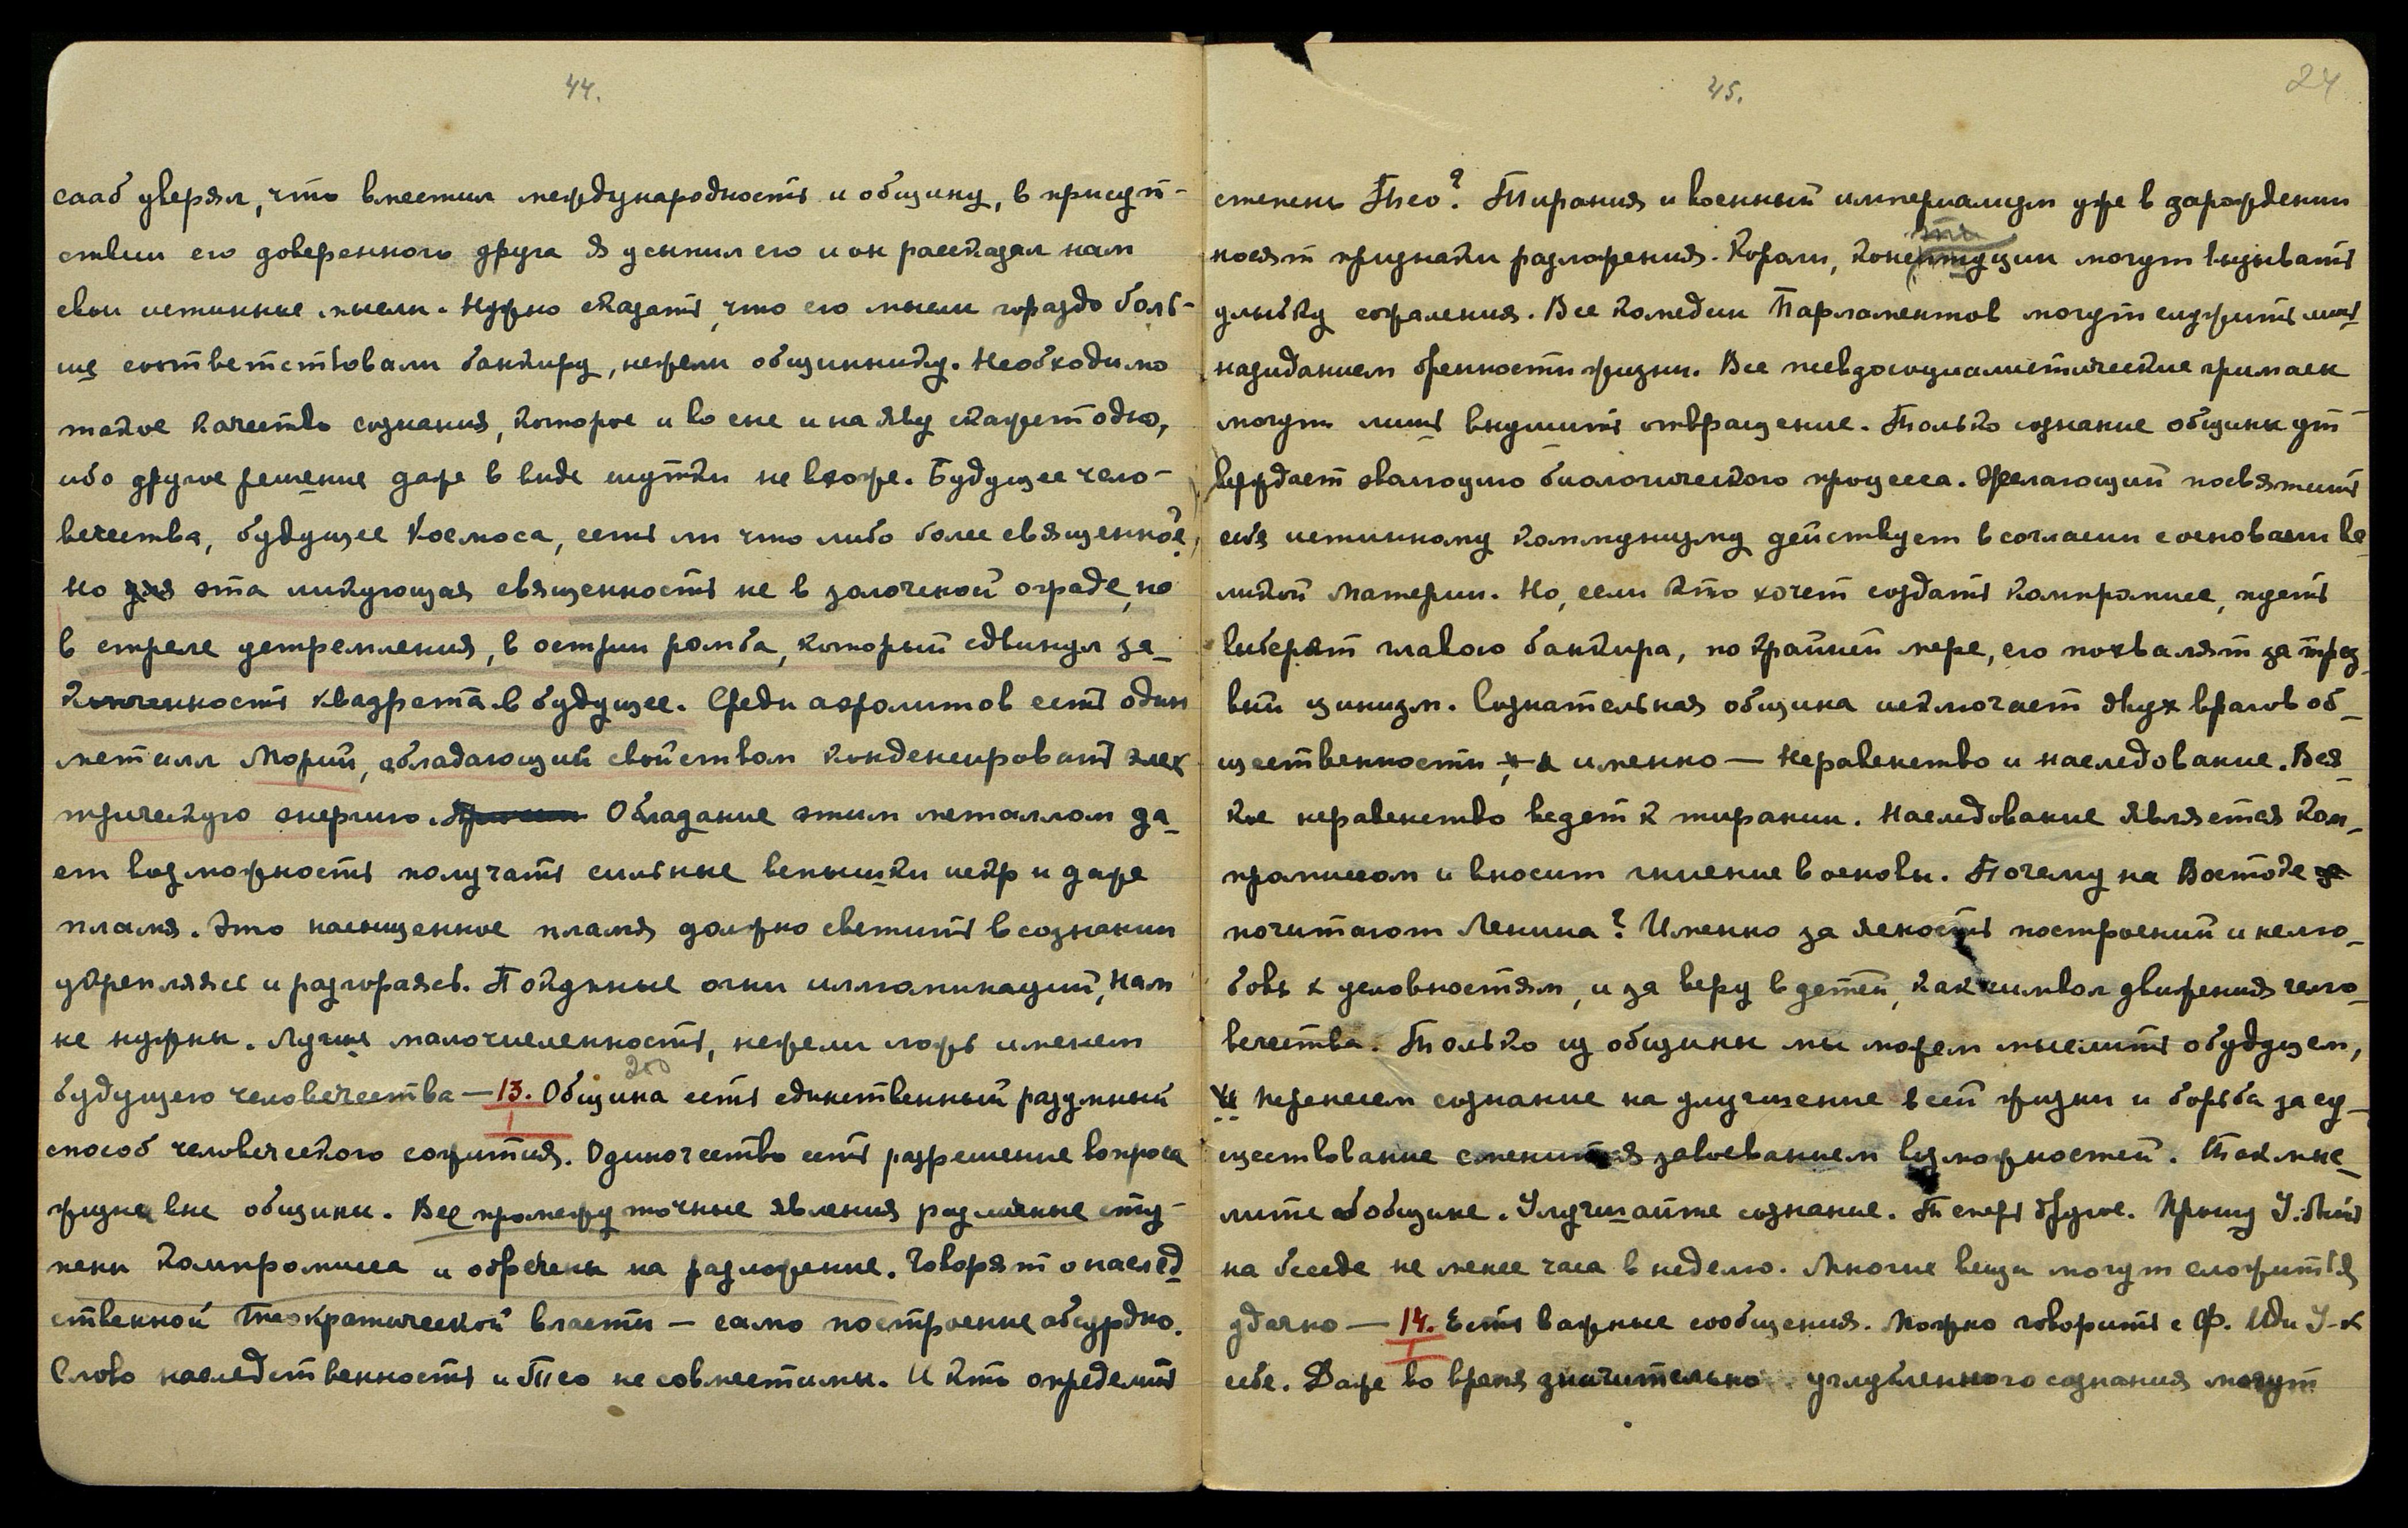 44.
сааб уверял, что вместил международность и общину, в присут-
ствии его доверенного друга я усыпил его и он рассказал нам
свои истинные мысли. Нужно сказать, что его мысли гораздо боль-
ше соответствовали банкиру, нежели общиннику. Необходимо
такое качество сознания, которое и во сне и на яву скажет одно,
ибо другое решение даже в виде шутки не вхоже. Будущее чело-
вечества, будущее Космоса, есть ли что либо более священное?
Но эта ликующая священность не в золоченой ограде, но
в стреле устремления, в острии ромба, который сдвинул за-
конченность квадрата в будущее. Среди аэролитов есть один
металл Морий, обладающий свойством конденсировать элек
трическую энергию. Обладание этим металлом да-
ет возможность получать сильные вспышки искр и даже
пламя. Это насыщенное пламя должно светить в сознании
укрепляясь и разгораясь. Показные огни иллюминаций, нам
не нужны. Лучше малочисленность, нежели ложь именем
200
будущего человечества — 13. Община есть единственный разумный
способ человеческого сожития. Одиночество есть разрешение вопроса
жизни вне общины. Все промежуточные явления различные сту-
пени компромисса и обречены на разложение. Говорят о наслед
ственной теократической власти — само построение абсурдно.
Слово наследственность и Тео не совместимы. И кто определит
45.
24
степень Тео? Тирания и военный империализм уже в зарождении
носят признаки разложения. Короли, конституции могут вызывать
улыбку сожаления. Все комедии Парламентов могут служить лишь
назиданием бренности жизни. Все псевдосоциалистические гримасы
могут лишь внушить отвращение. Только сознание общины ут-
верждает эволюцию биологического процесса. Желающий посвятить
себя истинному коммунизму действует в согласии с основами ве-
ликой Материи. Но, если кто хочет создать компромисс, пусть
выберет главою банкира, по крайней мере, его похвалят за трез-
вый цинизм. Сознательная община исключает двух врагов об-
щественности, а именно — неравенство и наследование. Вся-
кое неравенство ведет к тирании. Наследование является ком-
промиссом и вносит гниение в основы. Почему на Востоке
почитают Ленина? Именно за ясность построений и нелю-
бовь к условностям, и за веру в детей, как символ движения чело-
вечества. Только из общины мы можем мыслить о будущем,
И перенесем сознание на улучшение всей жизни и борьба за су-
ществование сменится завоеванием возможностей. Так мыс-
лите об общине. Улучшайте сознание. Теперь другое. Прошу У. быть
на беседе не менее часа в неделю. Многие вещи могут сложиться
удачно — 14. Есть важные сообщения. Можно говорить с Ф. Иди У. к
себе. Даже во время значительно углубленного сознания могут